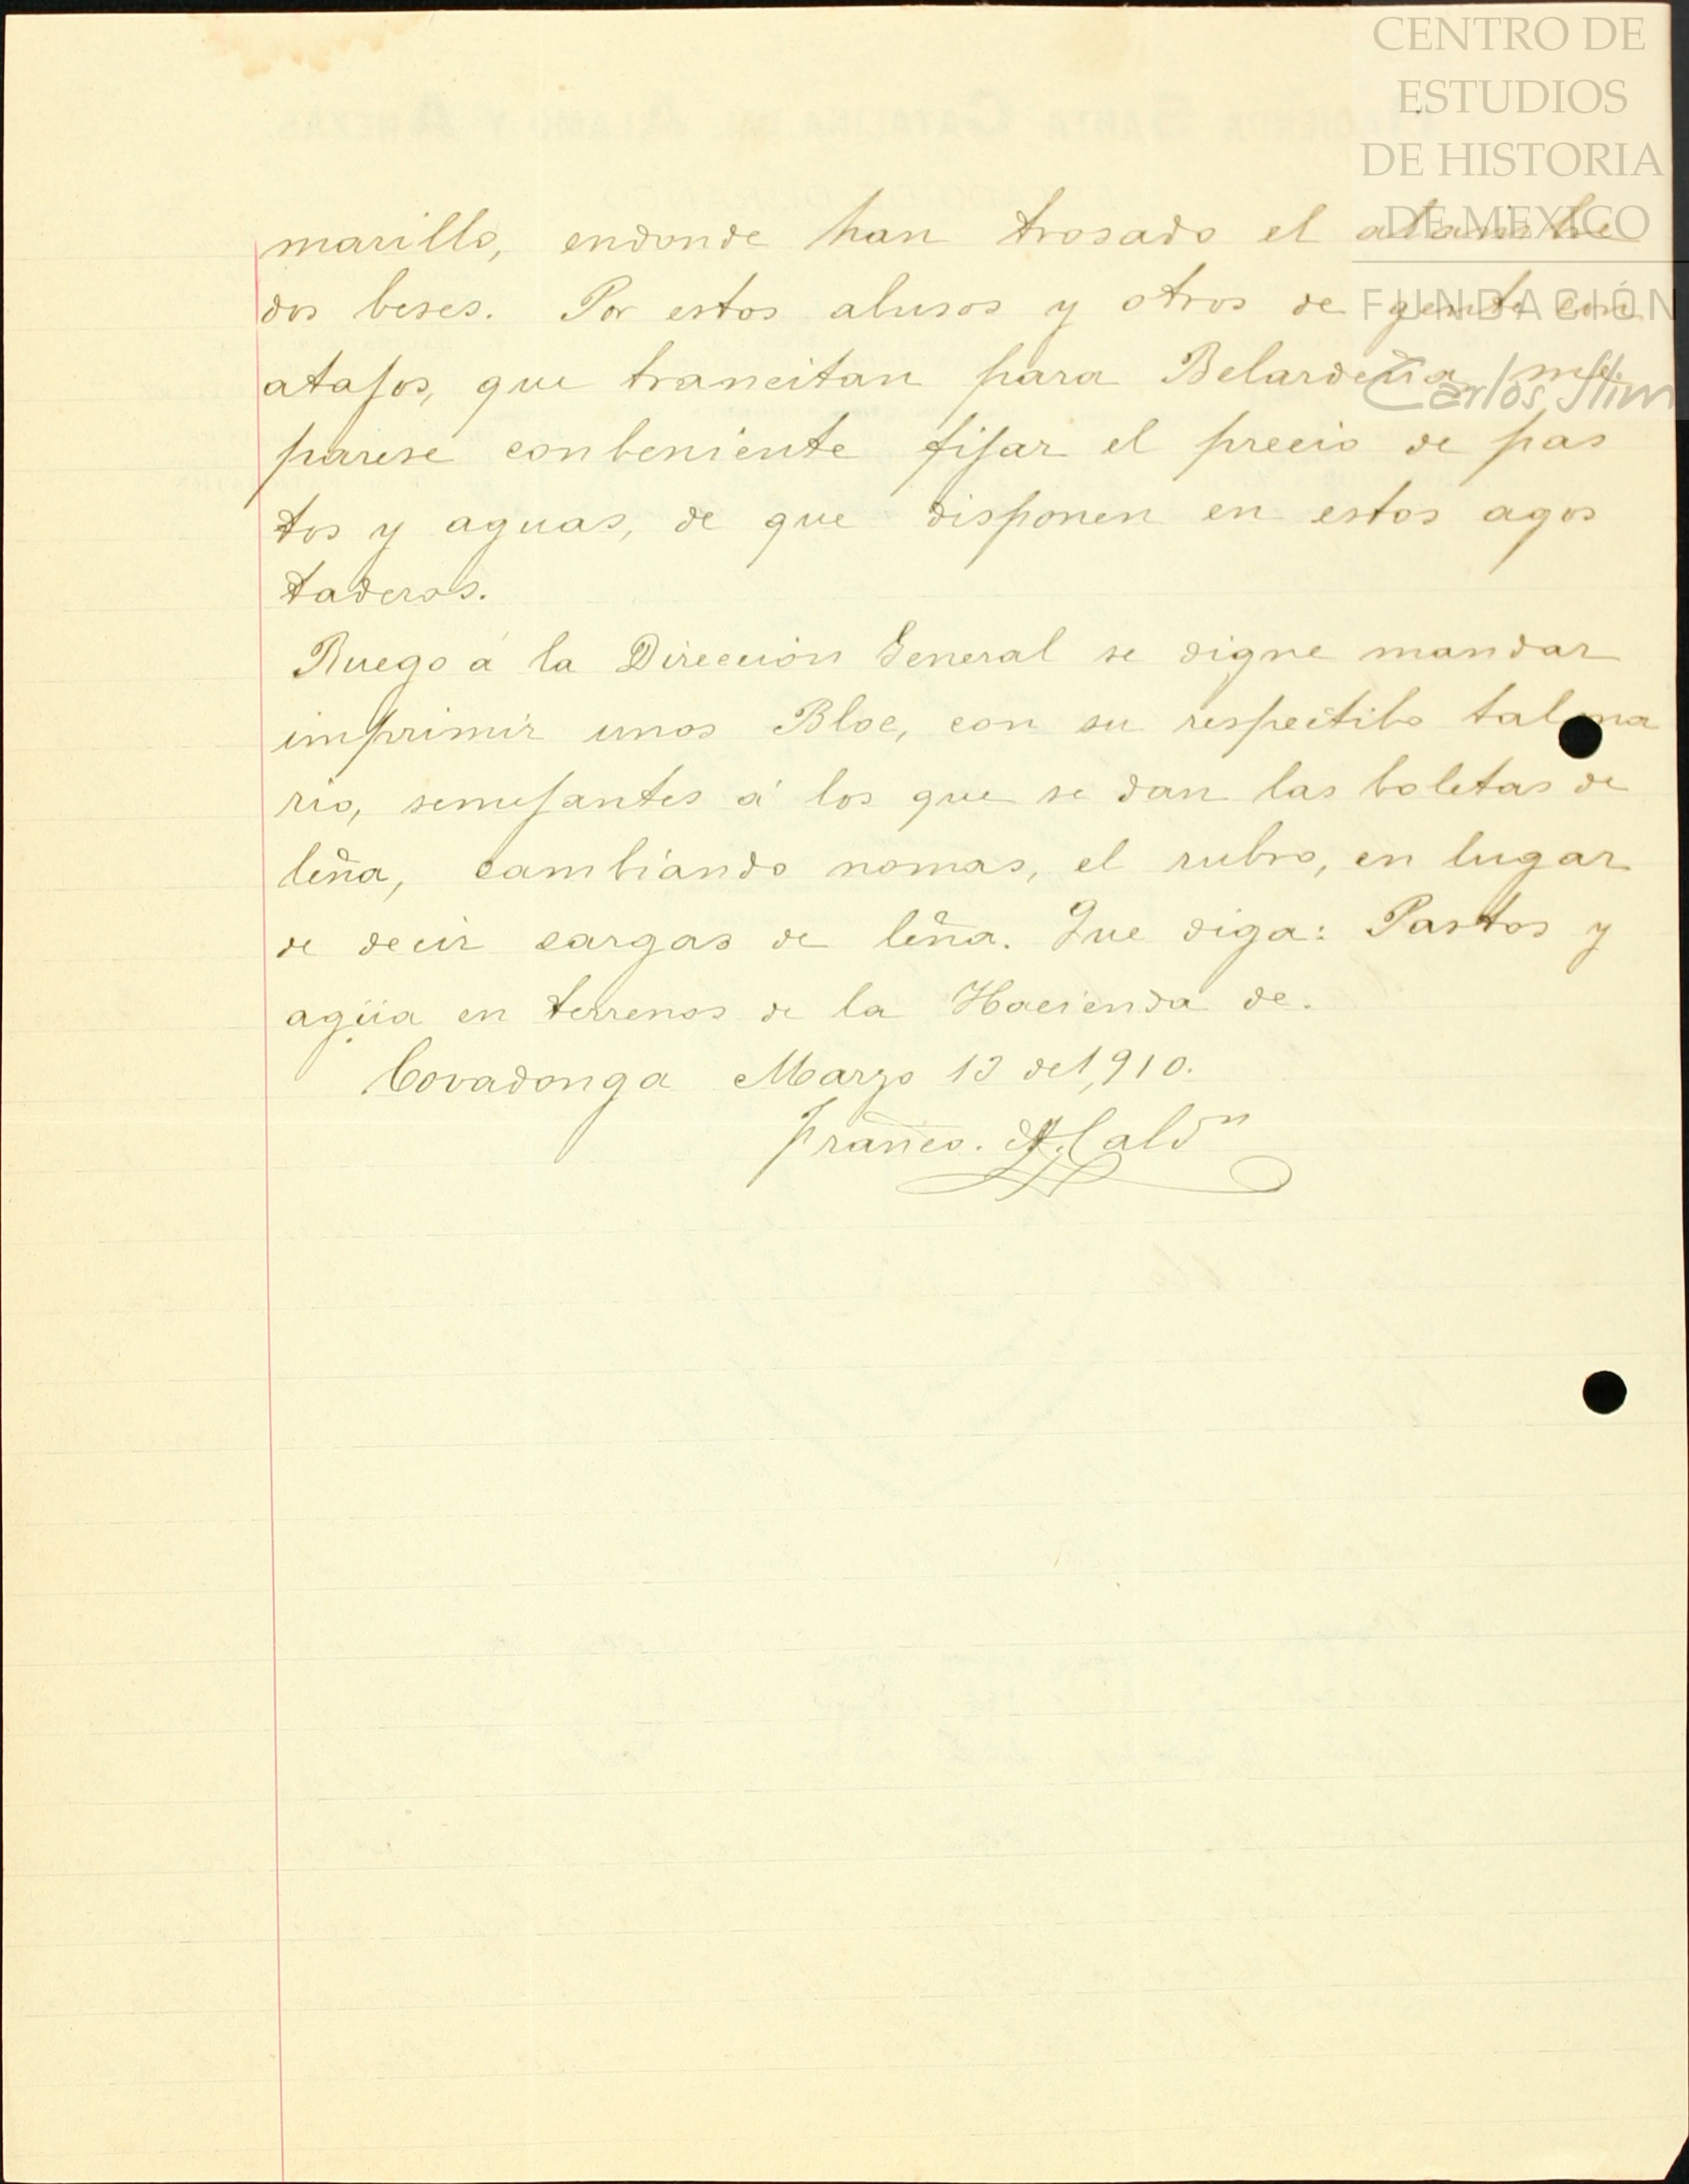 CENTRO DE
ESTUDIOS
DE HISTORIA
DE MEXICO
FUNDACIÓN
Carlos Slim
marillo, endonde han trosado el alambre
dos beses. Por estos abusos y otros de gente con
atajos, que trancitan para Belardeña me
parese conbeniente fijar el precio de pas
tos y aguas, de que disponen en estos agos
taderos.
Ruego á la Dirección General se digne mandar
imprimir unos Bloc, con su respectibo talona
rio, semejantes á los que se dan las boletas de
leña, cambiando nomas, el rubro, en lugar
de decir cargas de leña. Que diga: Pastos y
agüa en terrenos de la Hacienda de.
Covadonga Marzo 13 de 1,910.
Franco. Caldn